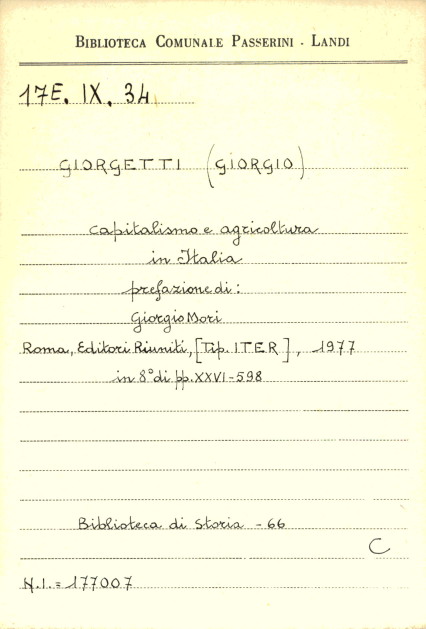 BIBLIOTECA COMUNALE PASSERINI - LANDI
17E. IX. 34
GIORGETTI (GIORGIO)
Capitalismo e agricoltura
in Italia
prefazione di:
Giorgio Mori
Roma, Editori Riuniti, [Tip. ITER], 1977
in 8° di pp. XXVI-598
Biblioteca di Storia - 66
C
N.I. = 177007